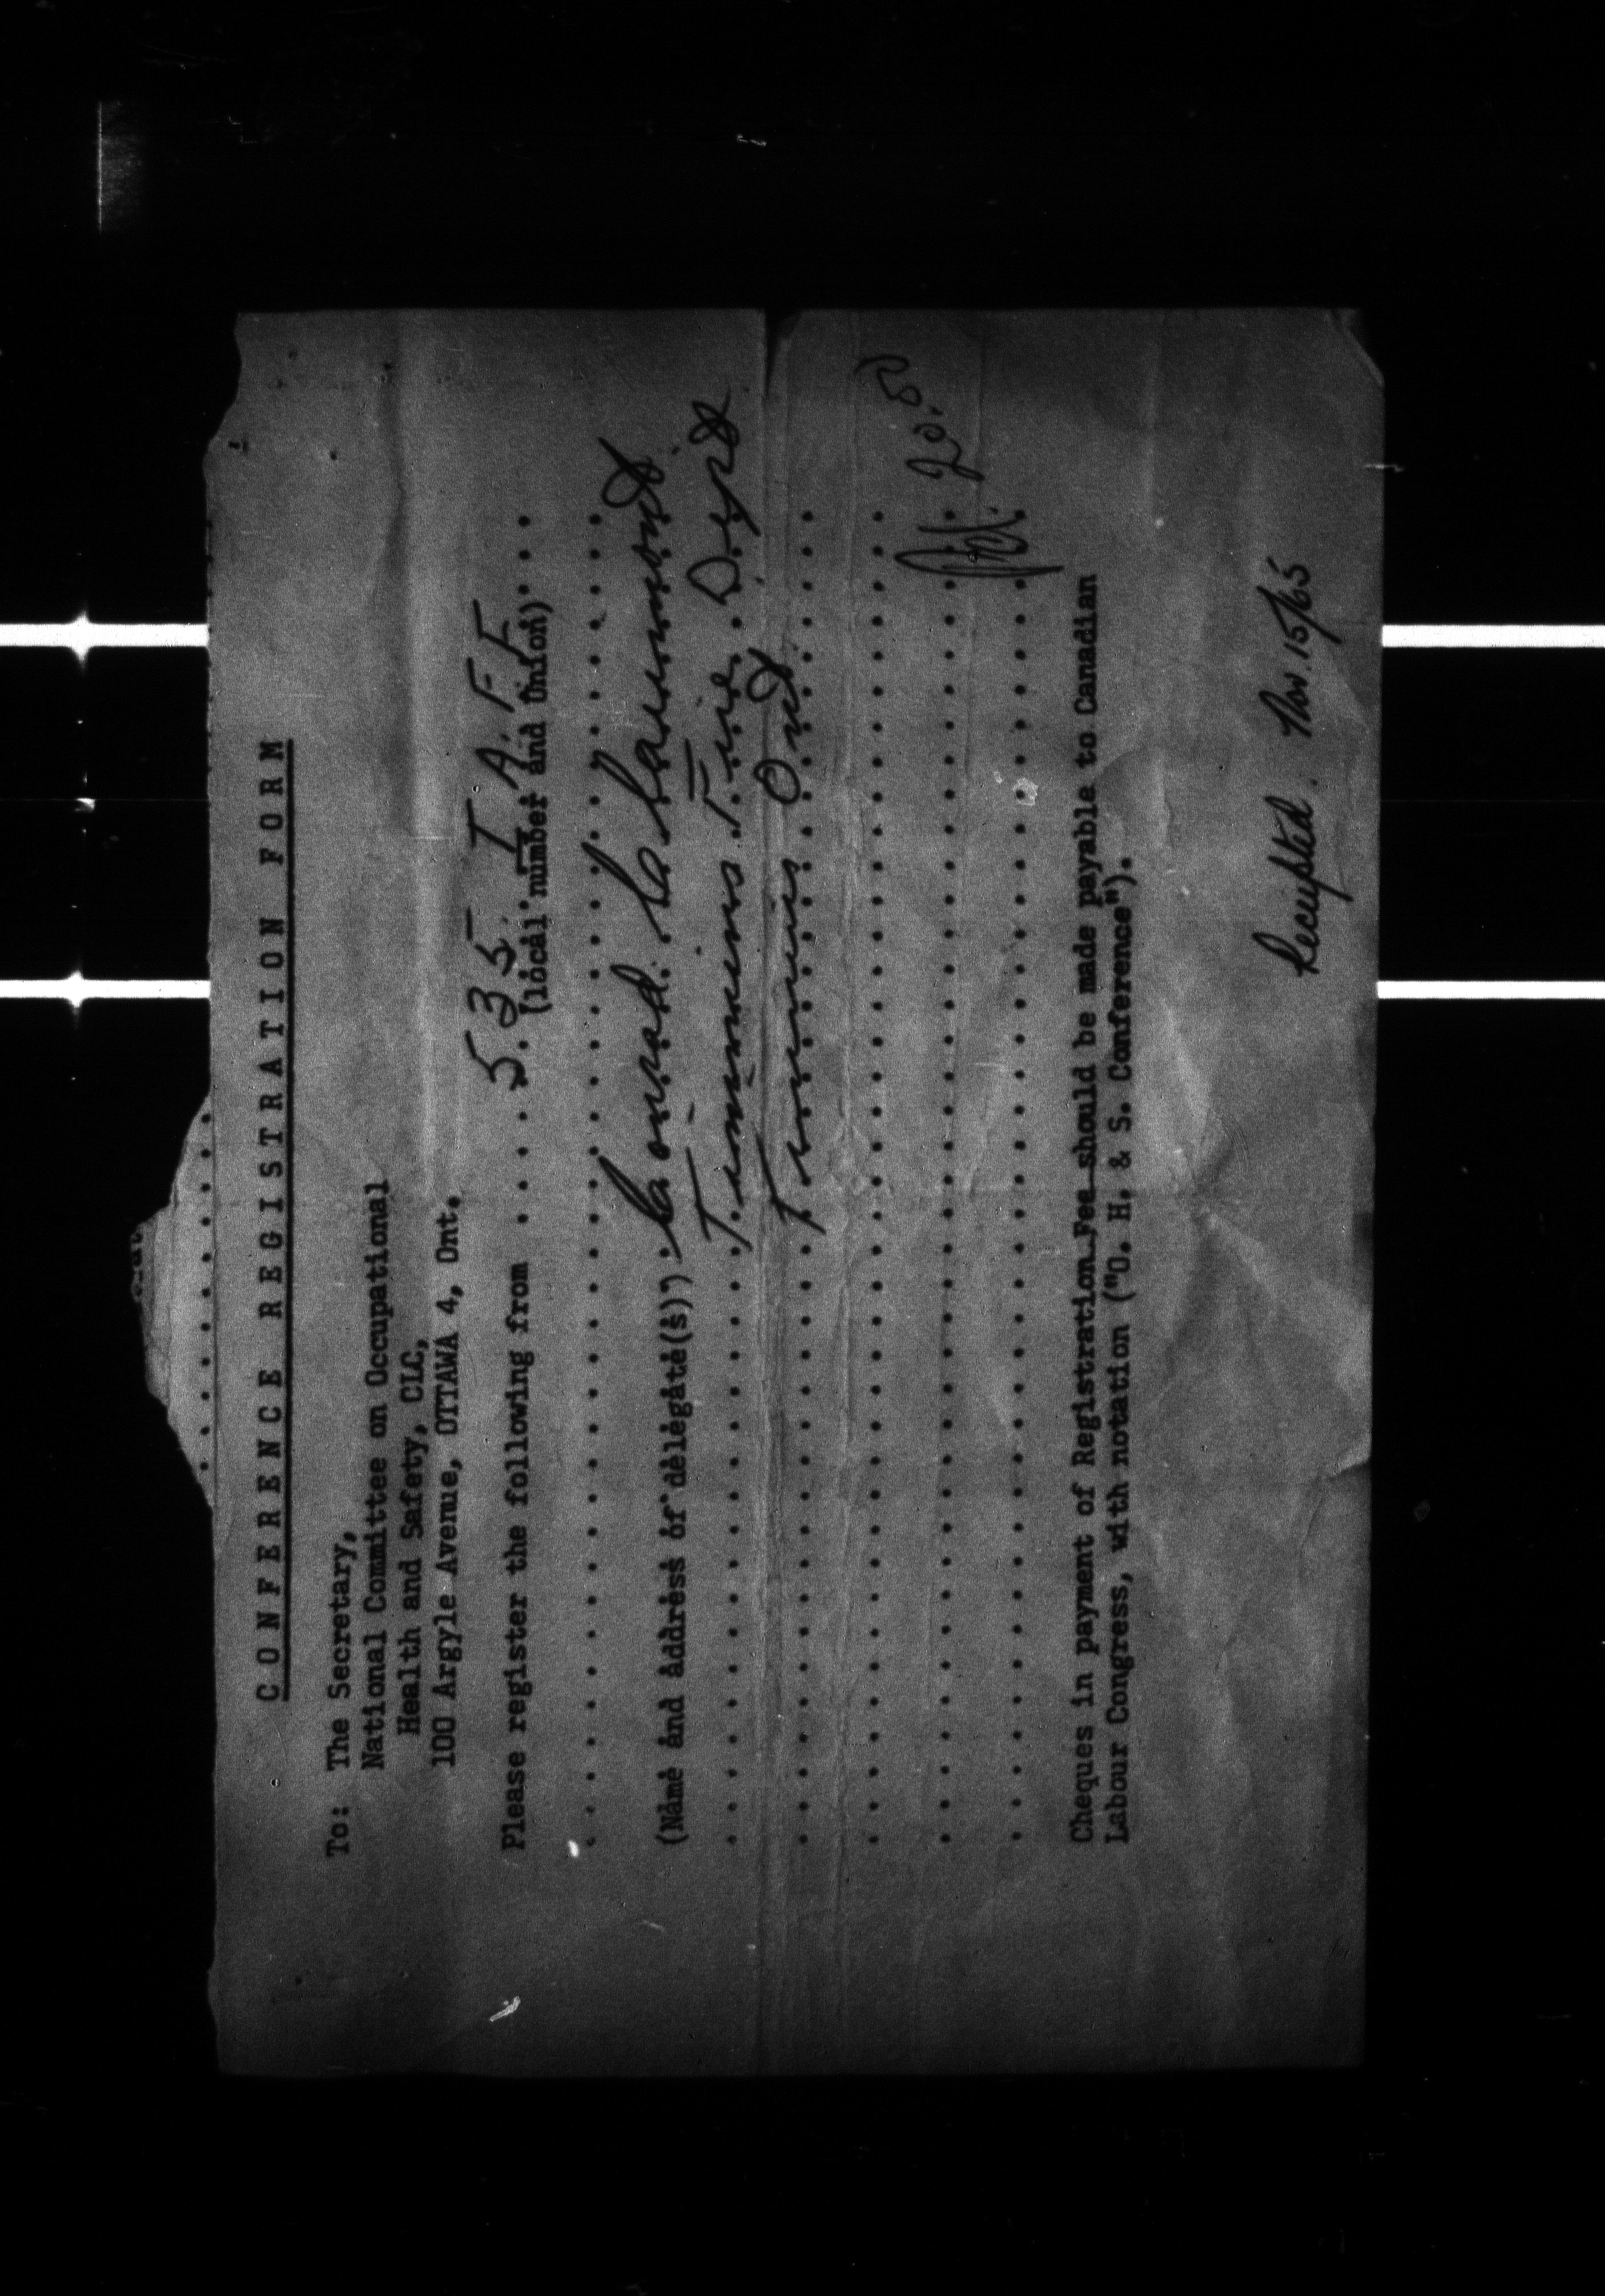 CONFERENCE REGISTRATION FORM
To: The Secretary,
National Committee on Occupational
Health and Safety, CLC,
100 Argyle Avenue, OTTAWA 4, Ont.
Please register the following from .... 535 I. A. F. F.
(local number and Union)
(Name and address of delegate(s)) Conrad
Timmins Fire Dept
Timmins Ont
Pd. 20.
Cheques in payment of Registration Fee should be made payable to Canadian
Labour Congress, with notation ("O. H. & S. Conference").
Receipted. Nov. 15/65